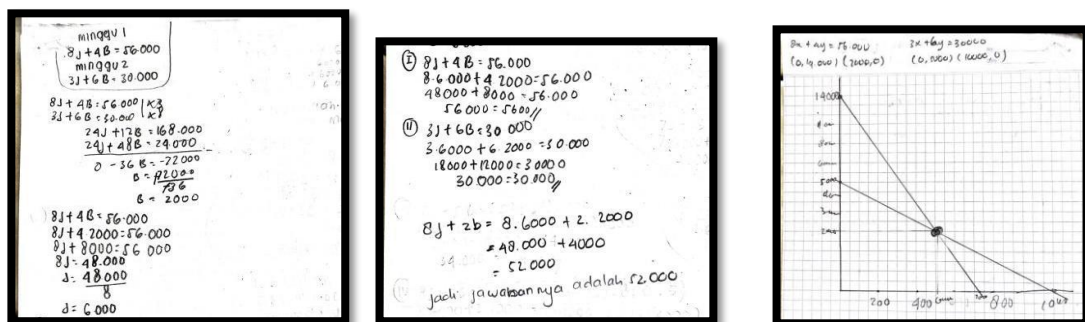 minggu 1
8J + 4B = 56.000
minggu 2
3J + 6B = 30.000
8J + 4B = 56.000 | x3
3J + 6B = 30.000 | x8
24J + 12B = 168.000
24J + 48B = 24.000
0 - 36B = -72000
B = -72000
-36
B = 2000
8J + 4B = 56.000
8J + 4.2000 = 56.000
8J + 8000 = 56 000
8J = 48.000
J = 48000
8
J = 6.000
I 8J + 4B = 56.000
8.6.000 + 4.2000 = 56.000
48000 + 8000 = 56.000
56000 = 5600 //
II 3J + 6B = 30 000
3.6000 + 6.2000 = 30.000
18000 + 12000 = 30000
30.000 = 30.000 //
8J + 2b = 8.6000 + 2.2000
= 48.000 + 4000
= 52.000
Jadi jawabannya adalah 52.000
8x + 4y = 56.000
3x + 6y = 30000
(0, 14.000) (7000, 0)
14000
2000
200
400
800